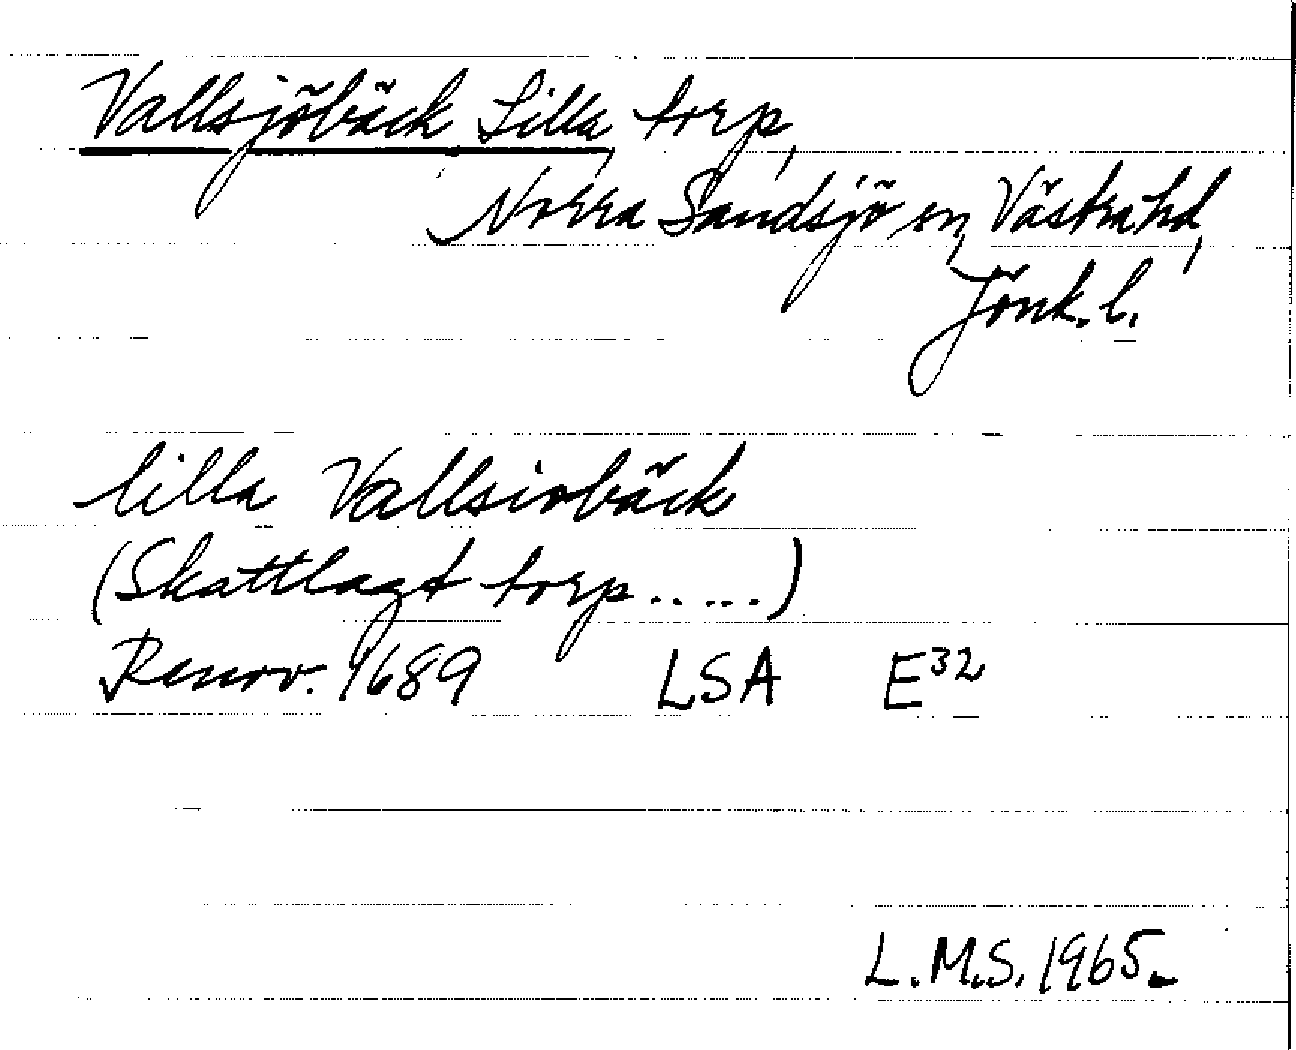 Vallsjöbäck Lilla, torp,
Norra Sandsjö sn, Västra hd,
Jönk. l.
lilla Vallsiobäck
(Skattlagt torp.....)
Renov. 1689 LSA E³²
L.M.S. 1965.